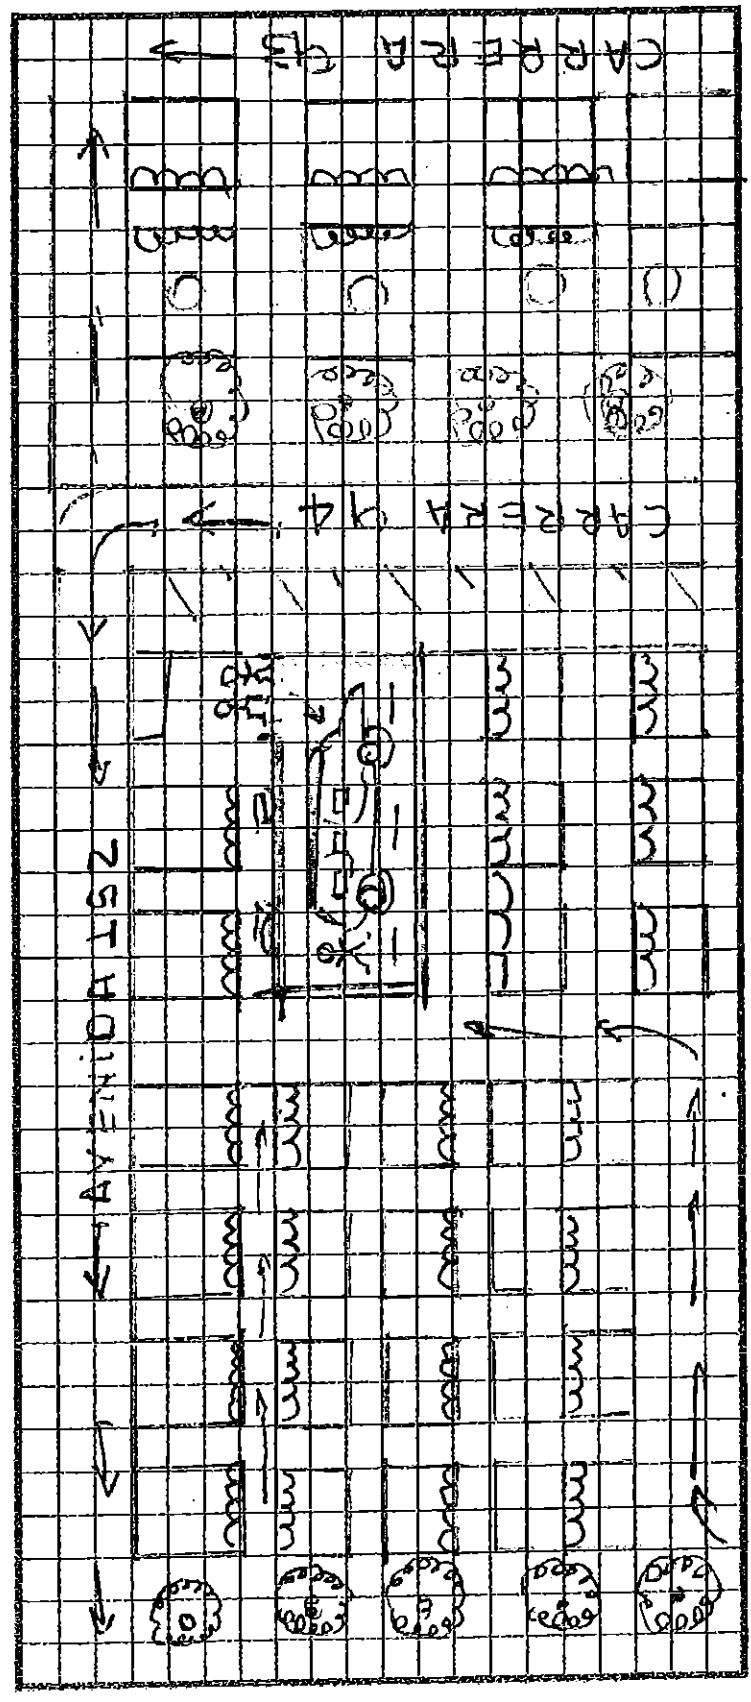 CARRERA
CARRERA 14
AVENIDA 152